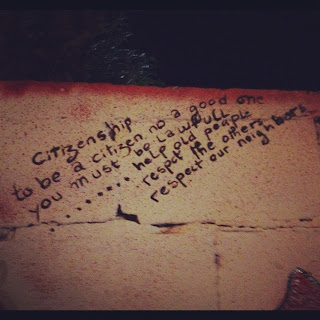 Citizenship
to be a citizen no a good one
you must be Lawfull
......... help old people
respet the others
respect our neighbors